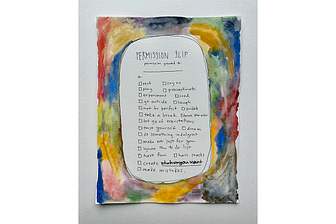 PERMISSION SLIP
permission granted to:
to:
rest say no
play procrastinate
experiment read
go outside laugh
not be perfect
take a break
let go of expectations
trust yourself dream
do something indulgent
make art just for you
ignore the to do list
have fun have snacks
create whatever you want
make mistakes.